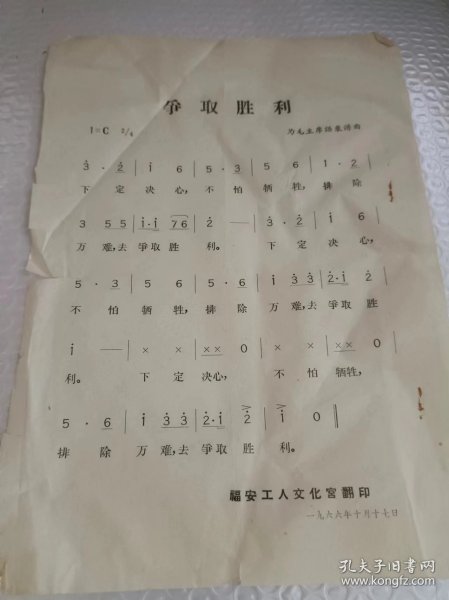 争取胜利
1=C 2/4 为毛主席語录譜曲
3̇·2̇ | i̇ 6 | 5·3 | 5 6 | 1·2 |
下定决心，不怕牺牲，排除
3 5 5 | i̇·i̇ 7 6 | 2̇ — | 3̇·2̇ | i̇ 6 |
万难，去爭取胜利。 下定决心，
5·3 | 5 6 | 5·6 | i̇ 3̇ 3̇ | 2̇·i̇ 2̇ |
不怕牺牲，排除万难，去爭取胜
i̇ — | × × | × × 0 | × × | × × 0 |
利。 下定决心， 不怕牺牲，
5·6 | i̇ 3̇ 3̇ | 2̇·i̇ 2̇ | i̇ 0 ‖
排除万难，去爭取胜利。
福安工人文化宮翻印
一九六六年十月十七日
孔夫子旧书网
www.kongfz.com